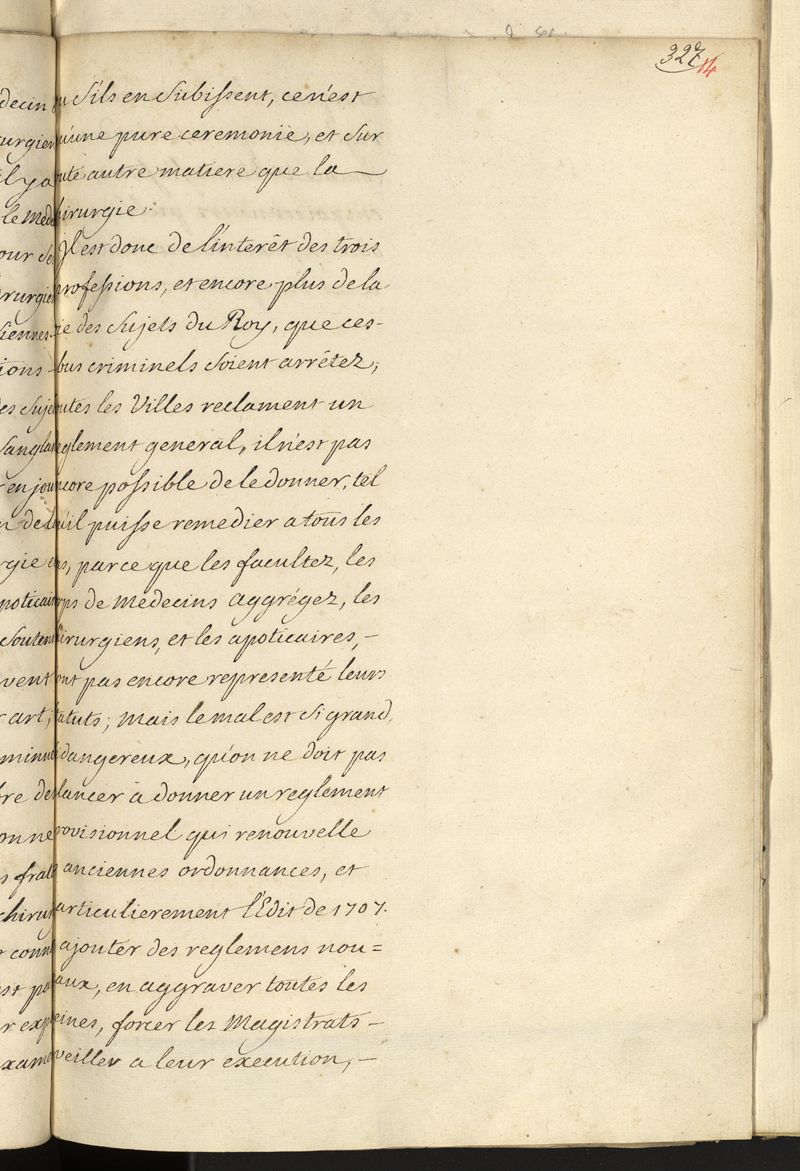 327
14
u s'ils en subissent, ce n'est
u'une pure ceremonie, et sur
oute autre matiere que la
hirurgie.
Il est donc de l'interêt des trois
professions, et encore plus de la
ie des sujets du Roy, que ces-
bus criminels soient arrêtez;
outes les Villes reclament un
eglement general, il n'est pas
ncore possible de le donner, tel
u'il puisse remedier a tous les
ns, parce que les facultez, les
orps de Medecins aggrégez, les
hirurgiens, et les apoticaires, -
ont pas encore representé leurs
tatuts; mais le mal est si grand,
i dangereux, qu'on ne doit pas
lancer à donner un reglement
rovisionnel qui renouvelle
anciennes ordonnances, et
articulierement l'Edit de 1707.
ajouter des reglemens nou=
aux, en aggraver toutes les
eines, forcer les Magistrats -
veiller a leur execution, -
decin
urgien
il y a
le Mede
our se
rurgien
siennes.
ions -
es suje
sangla
en jou
n de l
rgie e
poticair
souten
vent
art;
minu
re de
on ne
s frat
chiru
conn
st pa
r exp
xame